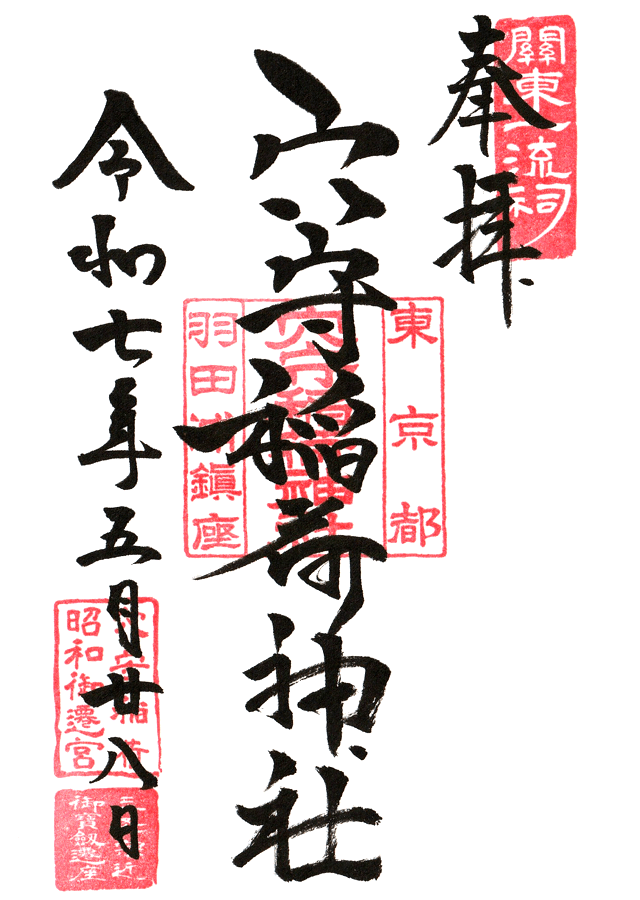 奉拝
關東一流祠
穴守稲荷神社
東京都
穴守稲荷神社
羽田浦鎮座
令和七年五月廿八日
昭和御遷宮
御寳劔遷座